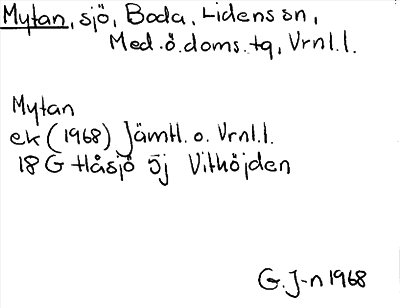 Mytan, sjö, Boda, Lidens sn,
Med.ö.doms.tg, Vrnl.l.
Mytan
ek (1968) Jämtl. o. Vrnl.l.
18 G Håsjö 5j Vithöjden
G. J-n 1968